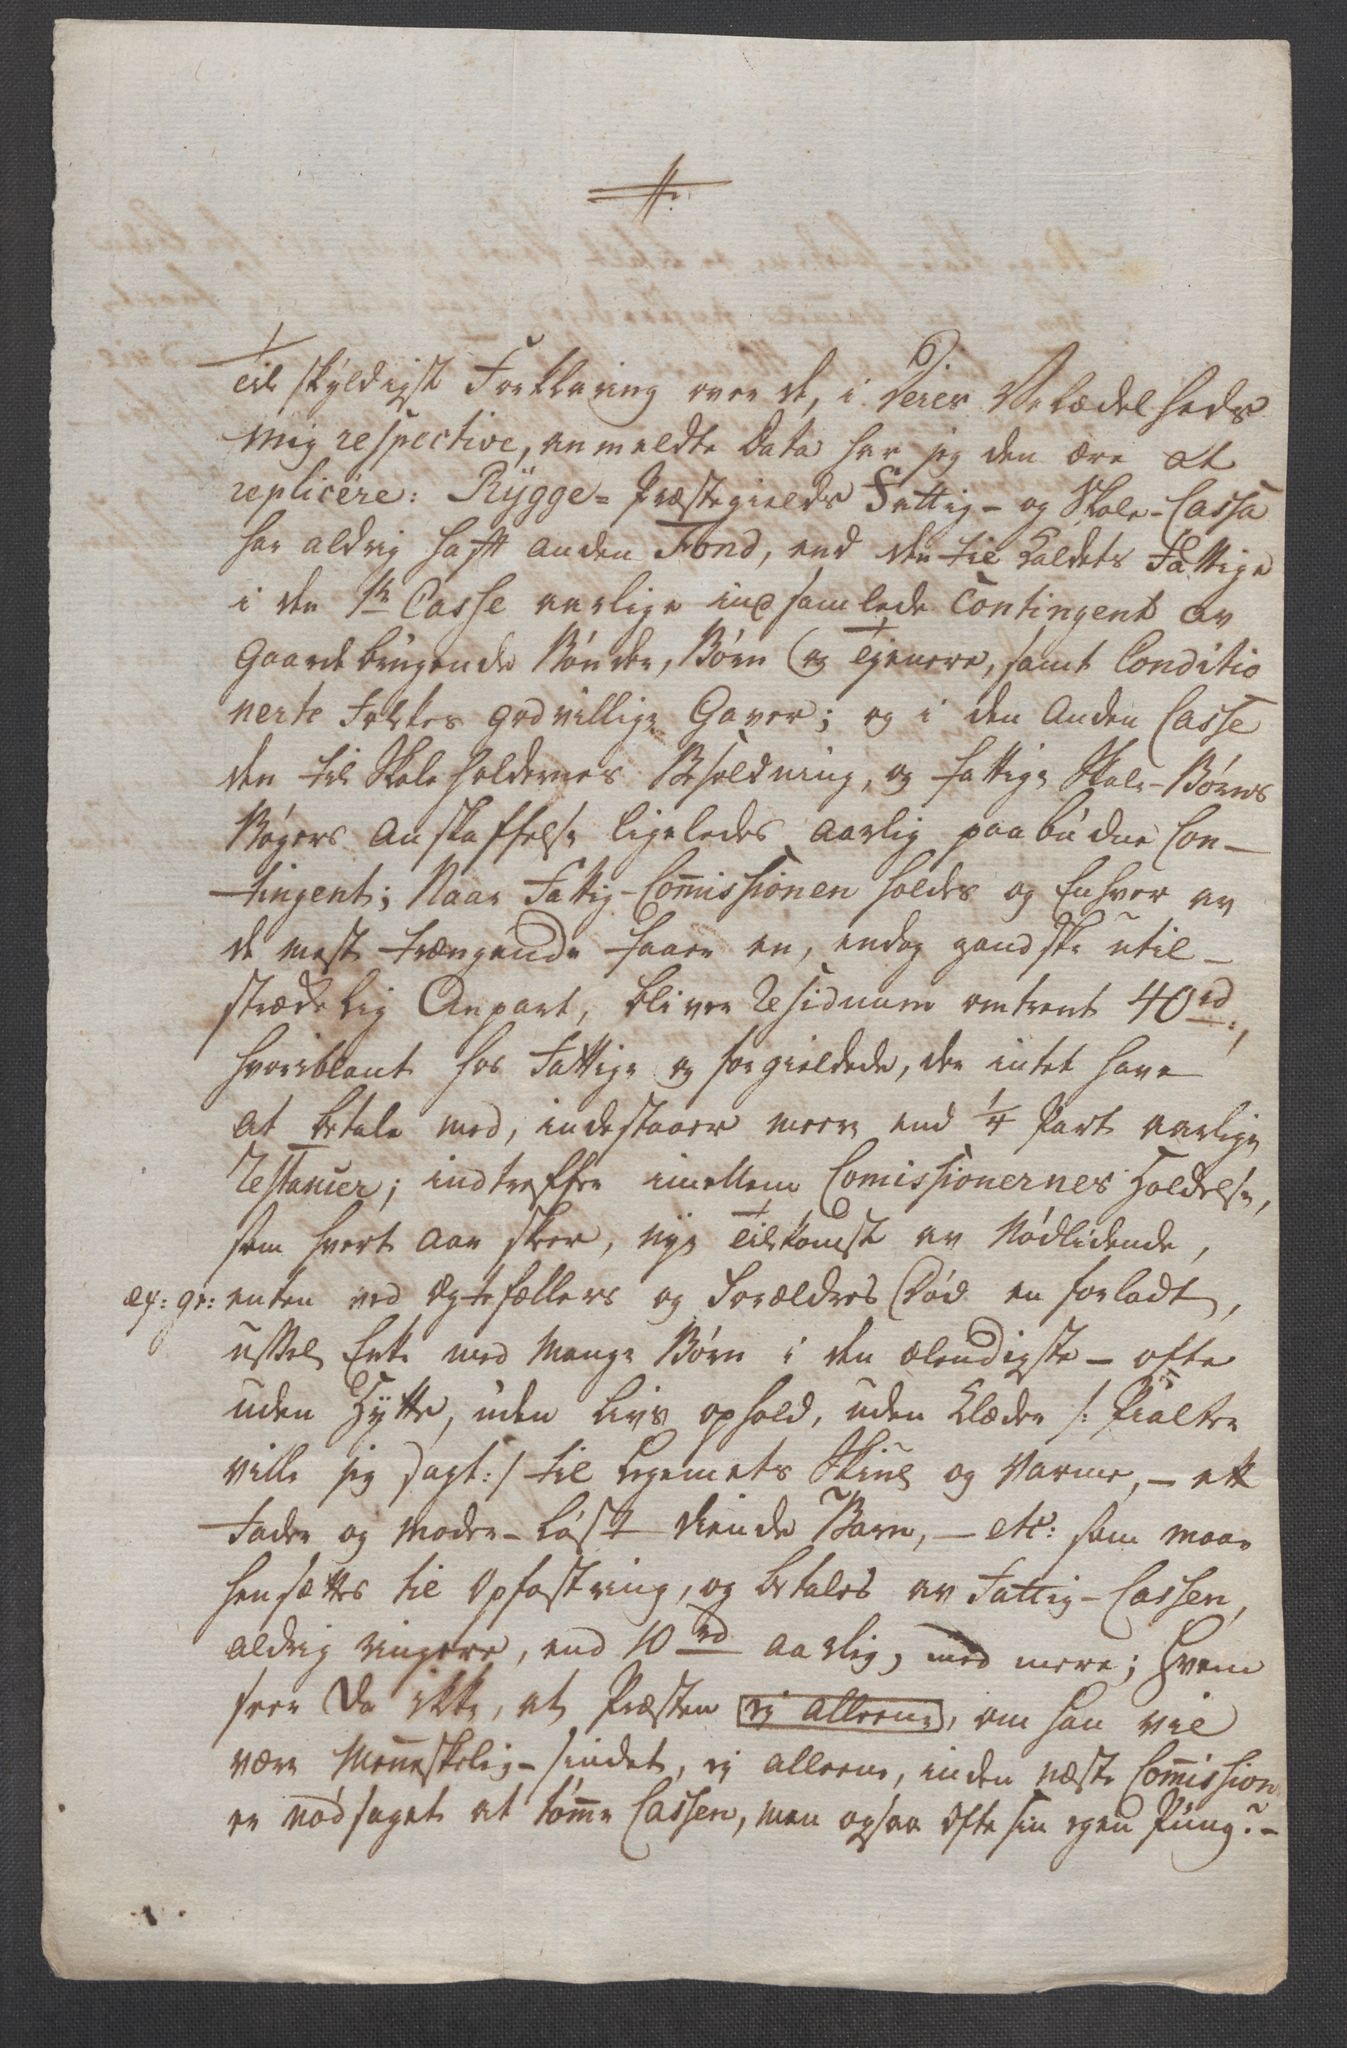 Til skyldigst Forklaring over de, i Deres Velædelheds
mig respective, anmeldte Data har jeg den ære at
replicére: Rÿgge- Præstegields Fattig- og Skole-Cassa
har aldrig haft anden Fond, end den til Kaldets Fattige
i den 1te Casse aarlige indsamlede Contingent av
Gaardbrugende Bønder, Børn og Tjenere, samt Conditio
nerte Folkes godvillige Gaver; og i den Anden Casse
den til Skoleholdernes Besoldning, og fattige Skole-Børns
Bøgers Anskaffelse ligeledes aarlig paabudne Con-
tingent; Naar Fattig-Com̅issionen holdes og Enhver av
de mest trængende faaer en, endog gandske util-
strædelig Anpart, bliver Residuum omtrent 40 rd:,
hvoriblant hos Fattige og forgieldede, der intet have
at betale med, indestaaer meere end 1/4 Part aarlige
Restancer; indtreffer imellem Comissionernes Holdelse,
som hvert Aar skeer, nye Tilkomst av Nødlidende,
ex: gr: enten ved Ægtefællers og Forældres Død en forladt,
ussel Enke med mange Børn i den elendigste - ofte
uden Hytte, uden Livs ophold, uden Klæder /: Pialter
ville jeg sagt :/ til Legemets Skiul og Varme, - ett
Fader og Moder-løst diende Barn, - etc: som maae
hensættes til Opfostring, og betales av Fattig-Cassen,
aldrig ringere, end 10 rd aarlig, med mere; Hvem
seer da ikke, at Præsten ej alleene, om han vil
være Menneskelig-sindet, ej alleene, inden næste Com̅ission
er nødsaget at tøm̅e Cassen, men ogsaa ofte sin egen Pung? -